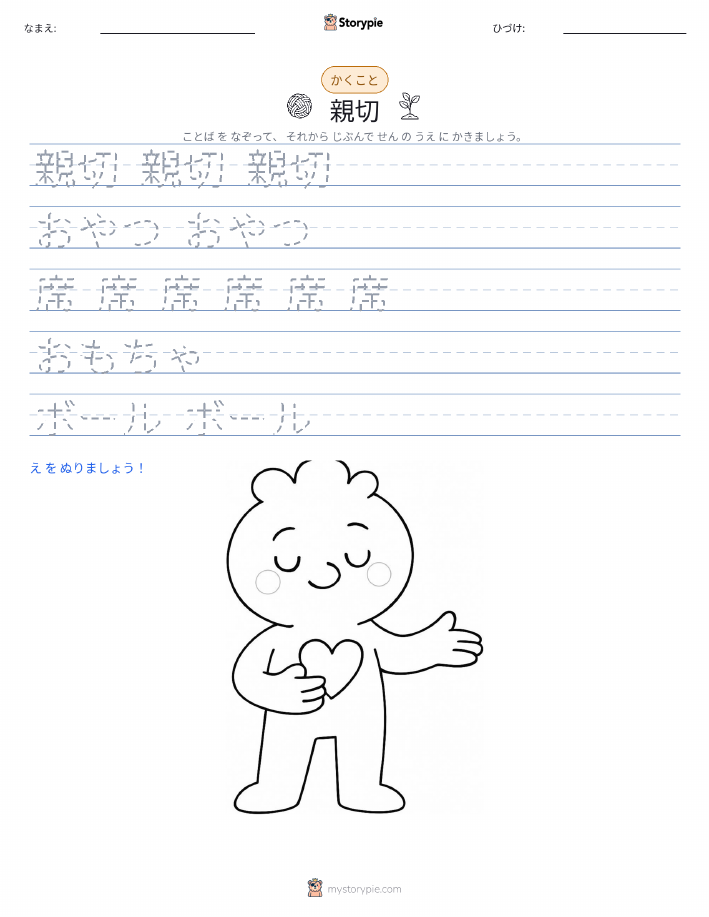 なまえ:
Storypie
ひづけ:
かくこと
親切
ことば を なぞって、 それから じぶんで せん の うえ に かきましょう。
親切 親切 親切
おやつ おやつ
席 席 席 席 席 席
おもちゃ
ボール ボール
え を ぬりましょう！
mystorypie.com